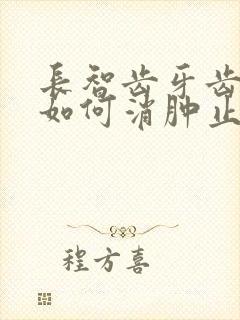 長智齿牙齿
如何消肿止
程方喜